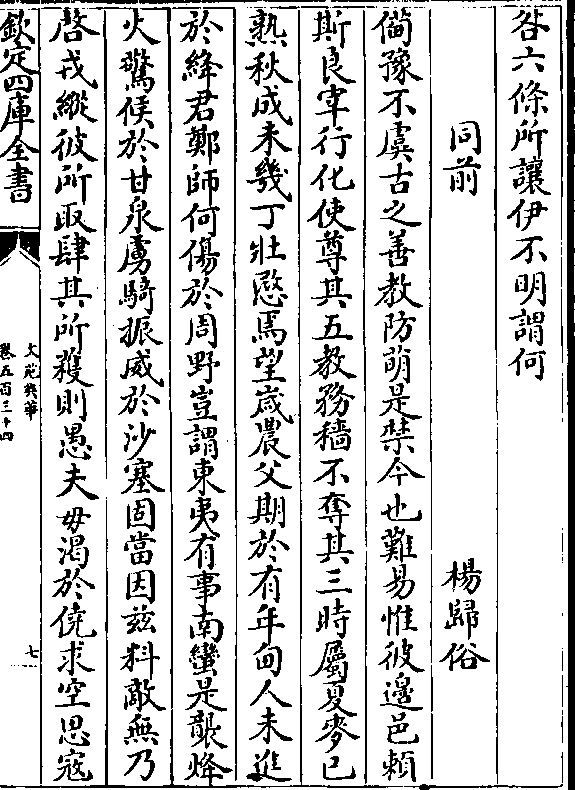 咎六條所讓伊不明謂何
同前　楊歸俗
備豫不虞古之善教防萌是禁今也難易惟彼邊邑賴
斯良宰行化使尊其五教務穡不奪其三時屬夏麥已
熟秋成未幾丁壯愍焉望歲農父期於有年甸人未進
於絳君鄭師何傷於周野豈謂東夷有事南蠻是襲烽
火驚候於甘泉虜騎振威於沙塞固當因兹料敵無乃
啓戎縱彼所取肆其所穫則愚夫毋渴於僥求空思寇
欽定四庫全書
文苑英華
卷五百三十四
七